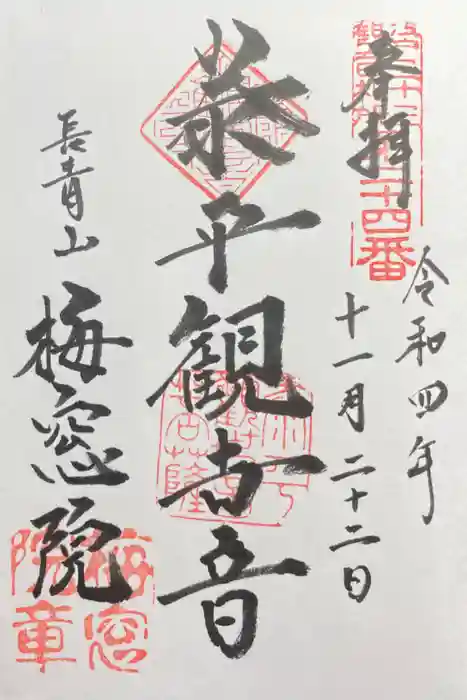 奉拝
二十四番
令和四年
十一月二十二日
泰平観世音
長青山
梅窓院
梅窓
院章